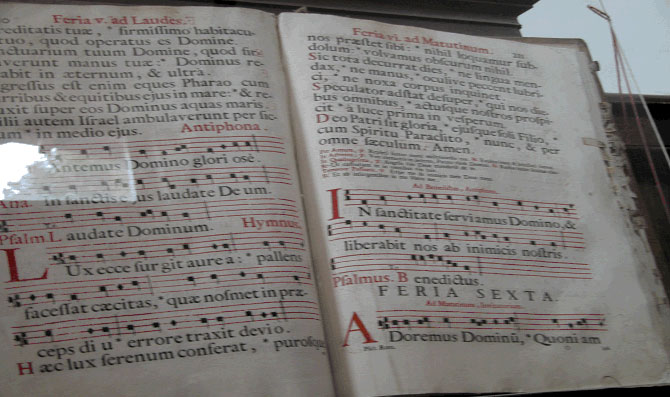 Feria v. ad Laudes.
reditatis tuæ, * firmiſſimo habitacu-
tuo, quod operatus es Domine
nctuarium tuum Domine, quod fir-
averunt manus tuæ: * Dominus re-
abit in æternum, & ultra.
greſſus eſt enim eques Pharao cum
rribus & equitibus ejus in mare: * & re-
axit ſuper eos Dominus aquas maris.
ilii autem Iſrael ambulaverunt per ſic-
um * in medio ejus.
Antiphona.
antemus Domino glori osè.
Ana in ſanctis e jus laudate De um.
Pſalm. L audate Dominum. Hymnus.
LUx ecce ſur git aure a: * pallens
faceſſat cæcitas, * quæ noſmet in præ-
ceps di u * errore traxit devio.
H æc lux ſerenum conferat, * puroſque
Feria vi. ad Matutinum.
nos præſtet ſibi: * nihil loquamur ſub-
dolum: * volvamus obſcurum nihil.
Sic tota decurrat dies, * ne lingua men-
dax, * ne manus, * oculive peccent lubri-
ci, * ne noxa corpus inquinet.
Speculator adſtat deſuper, * qui nos die-
bus omnibus, * actuſque noſtros proſpi-
cit * à luce prima in veſperum.
Deo Patri ſit gloria, * ejuſque ſoli Filio, *
cum Spiritu Paraclito, * nunc, & per
omne ſæculum. Amen.
Ad Benedictus, Antiphona.
IN ſanctitate ſerviamus Domino, &
liberabit nos ab inimicis noſtris.
Pſalmus. B enedictus.
FERIA SEXTA.
Ad Matutinum,
ADoremus Dominū, * Quoni am